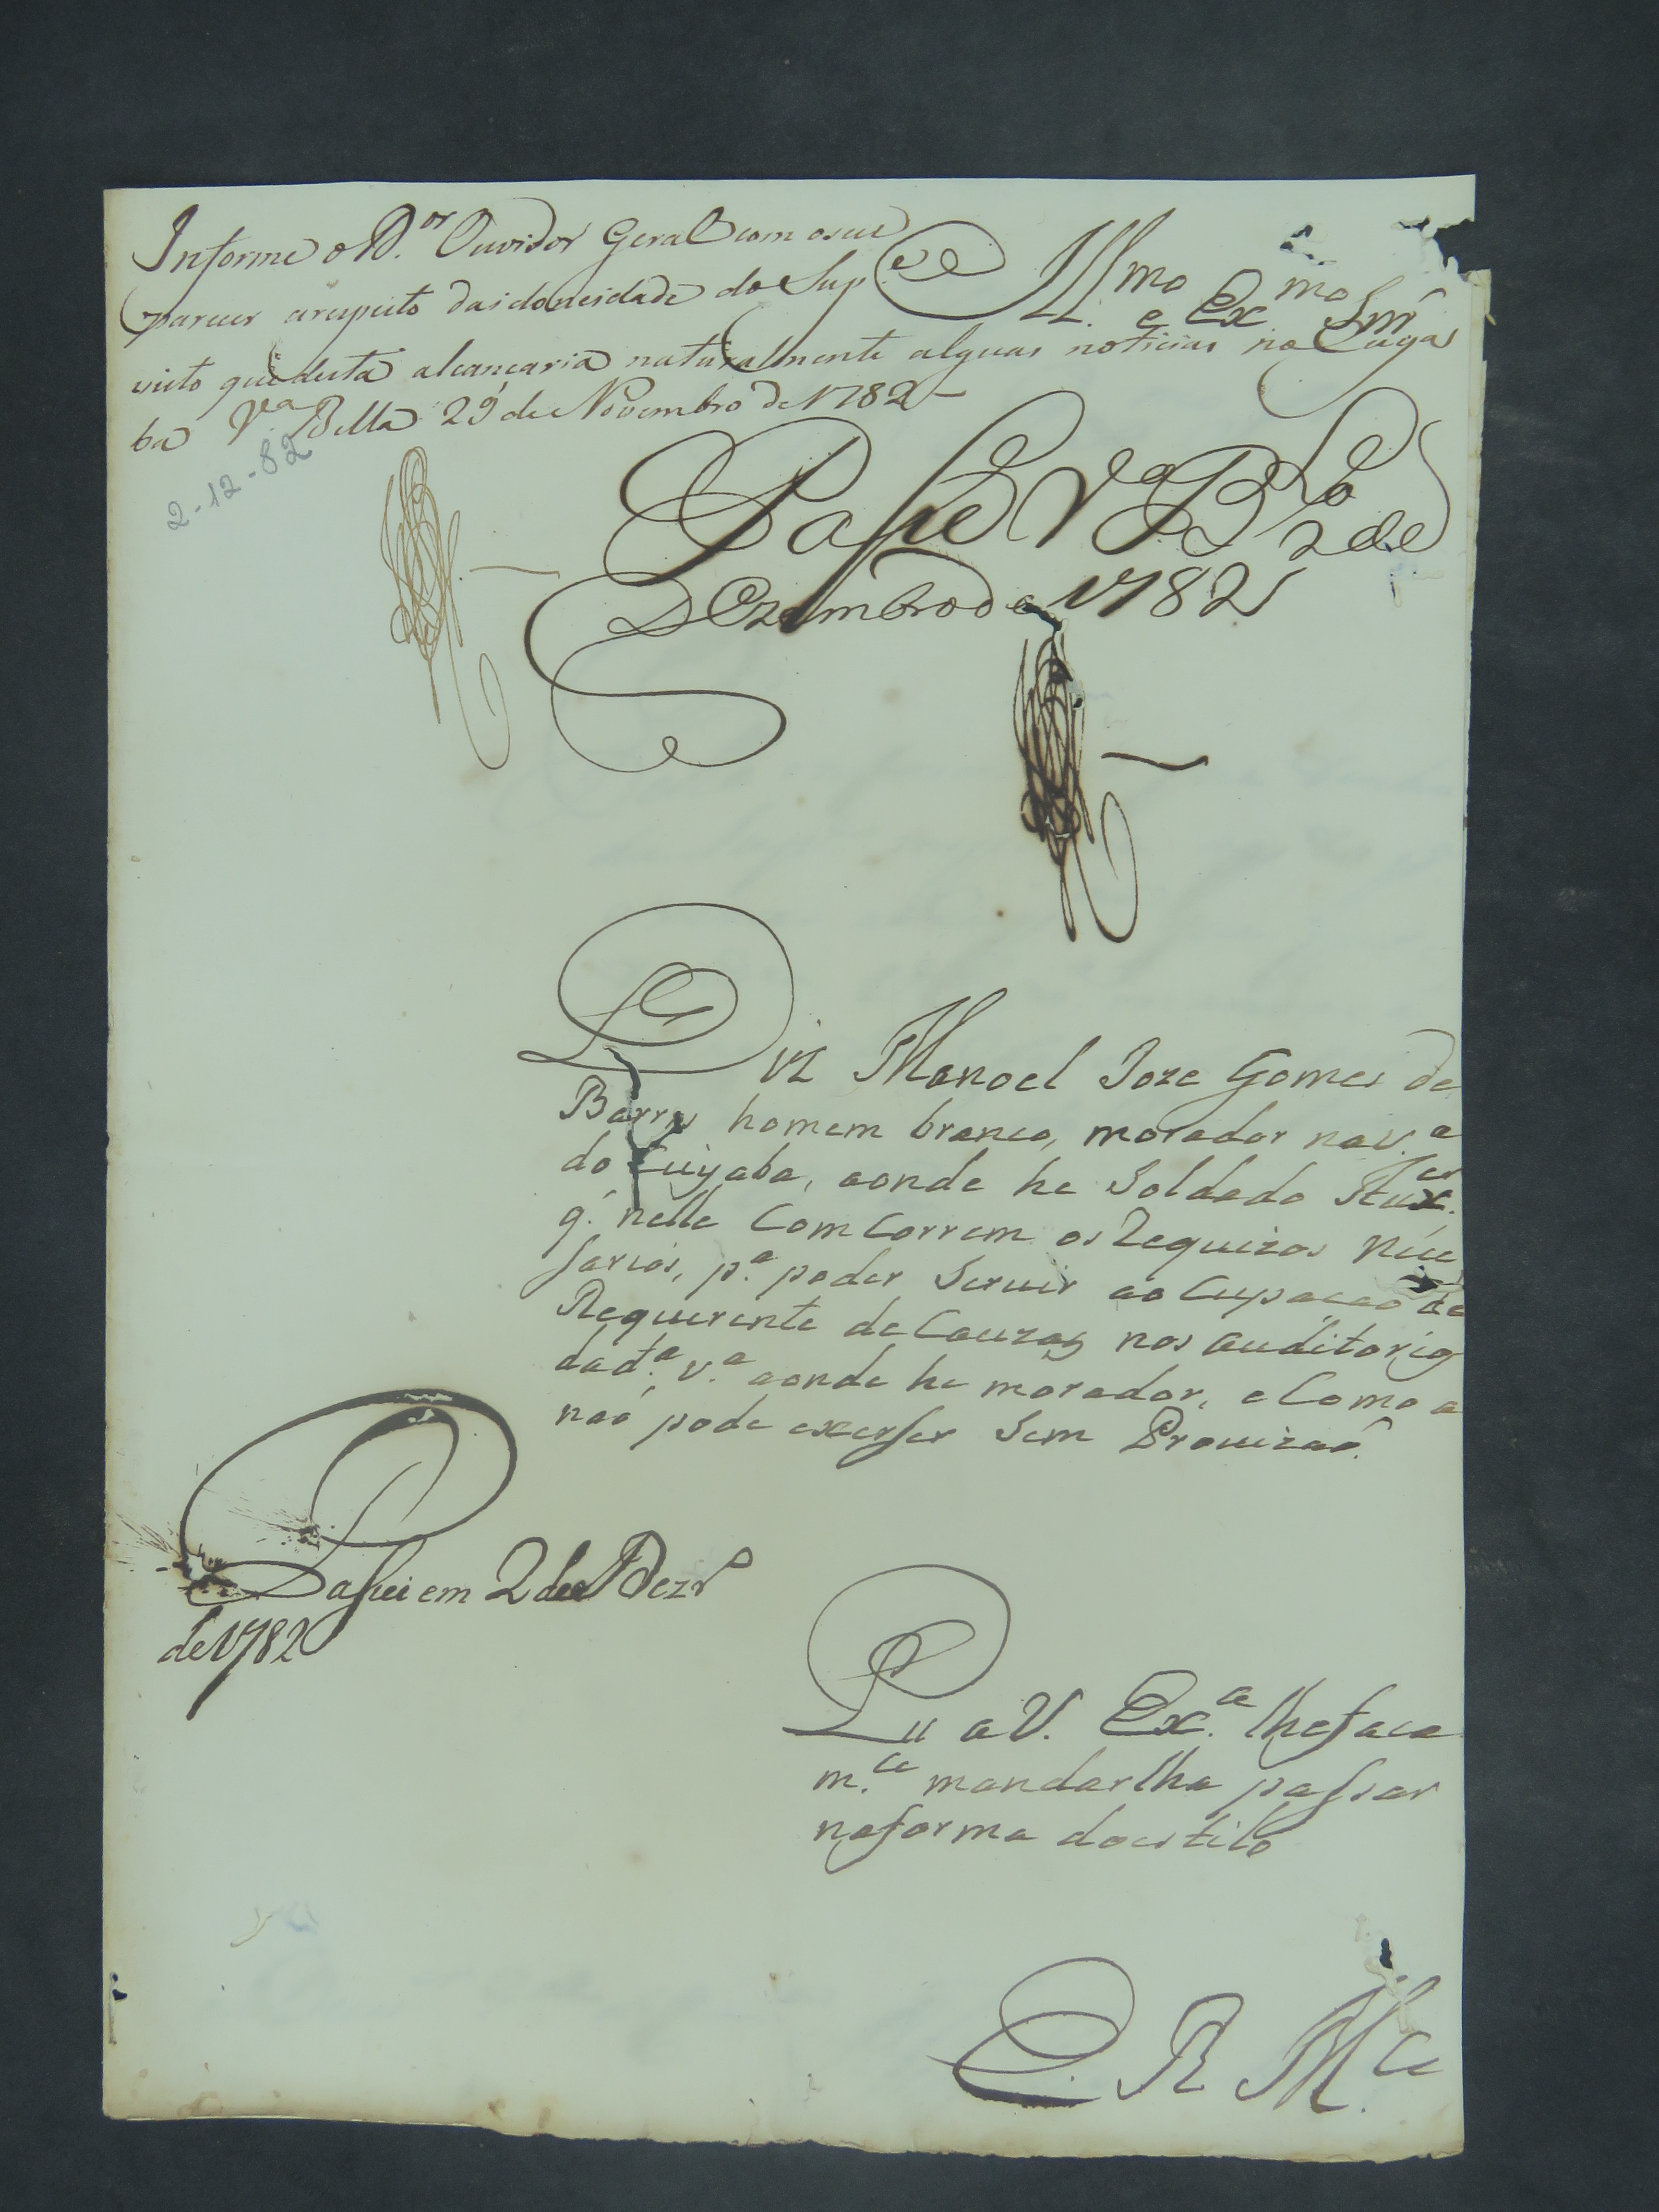 Informe o D.or Ouvidor Geral com o seu
parecer arespeito da idoneidade do Sup.e
Ill.mo e Ex.mo Snr
visto que desta alcançaria naturalmente alguas noticias no Cuya
ba V.a Bella 29 de Novembro de 1782 –
2-12-82
Passe V.a B.a 2 de
Dezembro de 1782
Diz Manoel Joze Gomes de
Barros homem branco, morador na v.a
do Cuyaba, aonde he Soldado Aux.ar
q. nelle Com Correm os Requizos Nece
sarios, p.a poder Servir ao Cupacao de
Requerente de Cauzas nos auditorios
da d.a v.a aonde he morador, e Como a
naó pode exerser Sem Provizaó.
Passei em 2 de Dezr.o
de 1782
P. a V. Ex.a lhe faca
m.ce mandarlha passar
na forma do estilo
E R M.ce